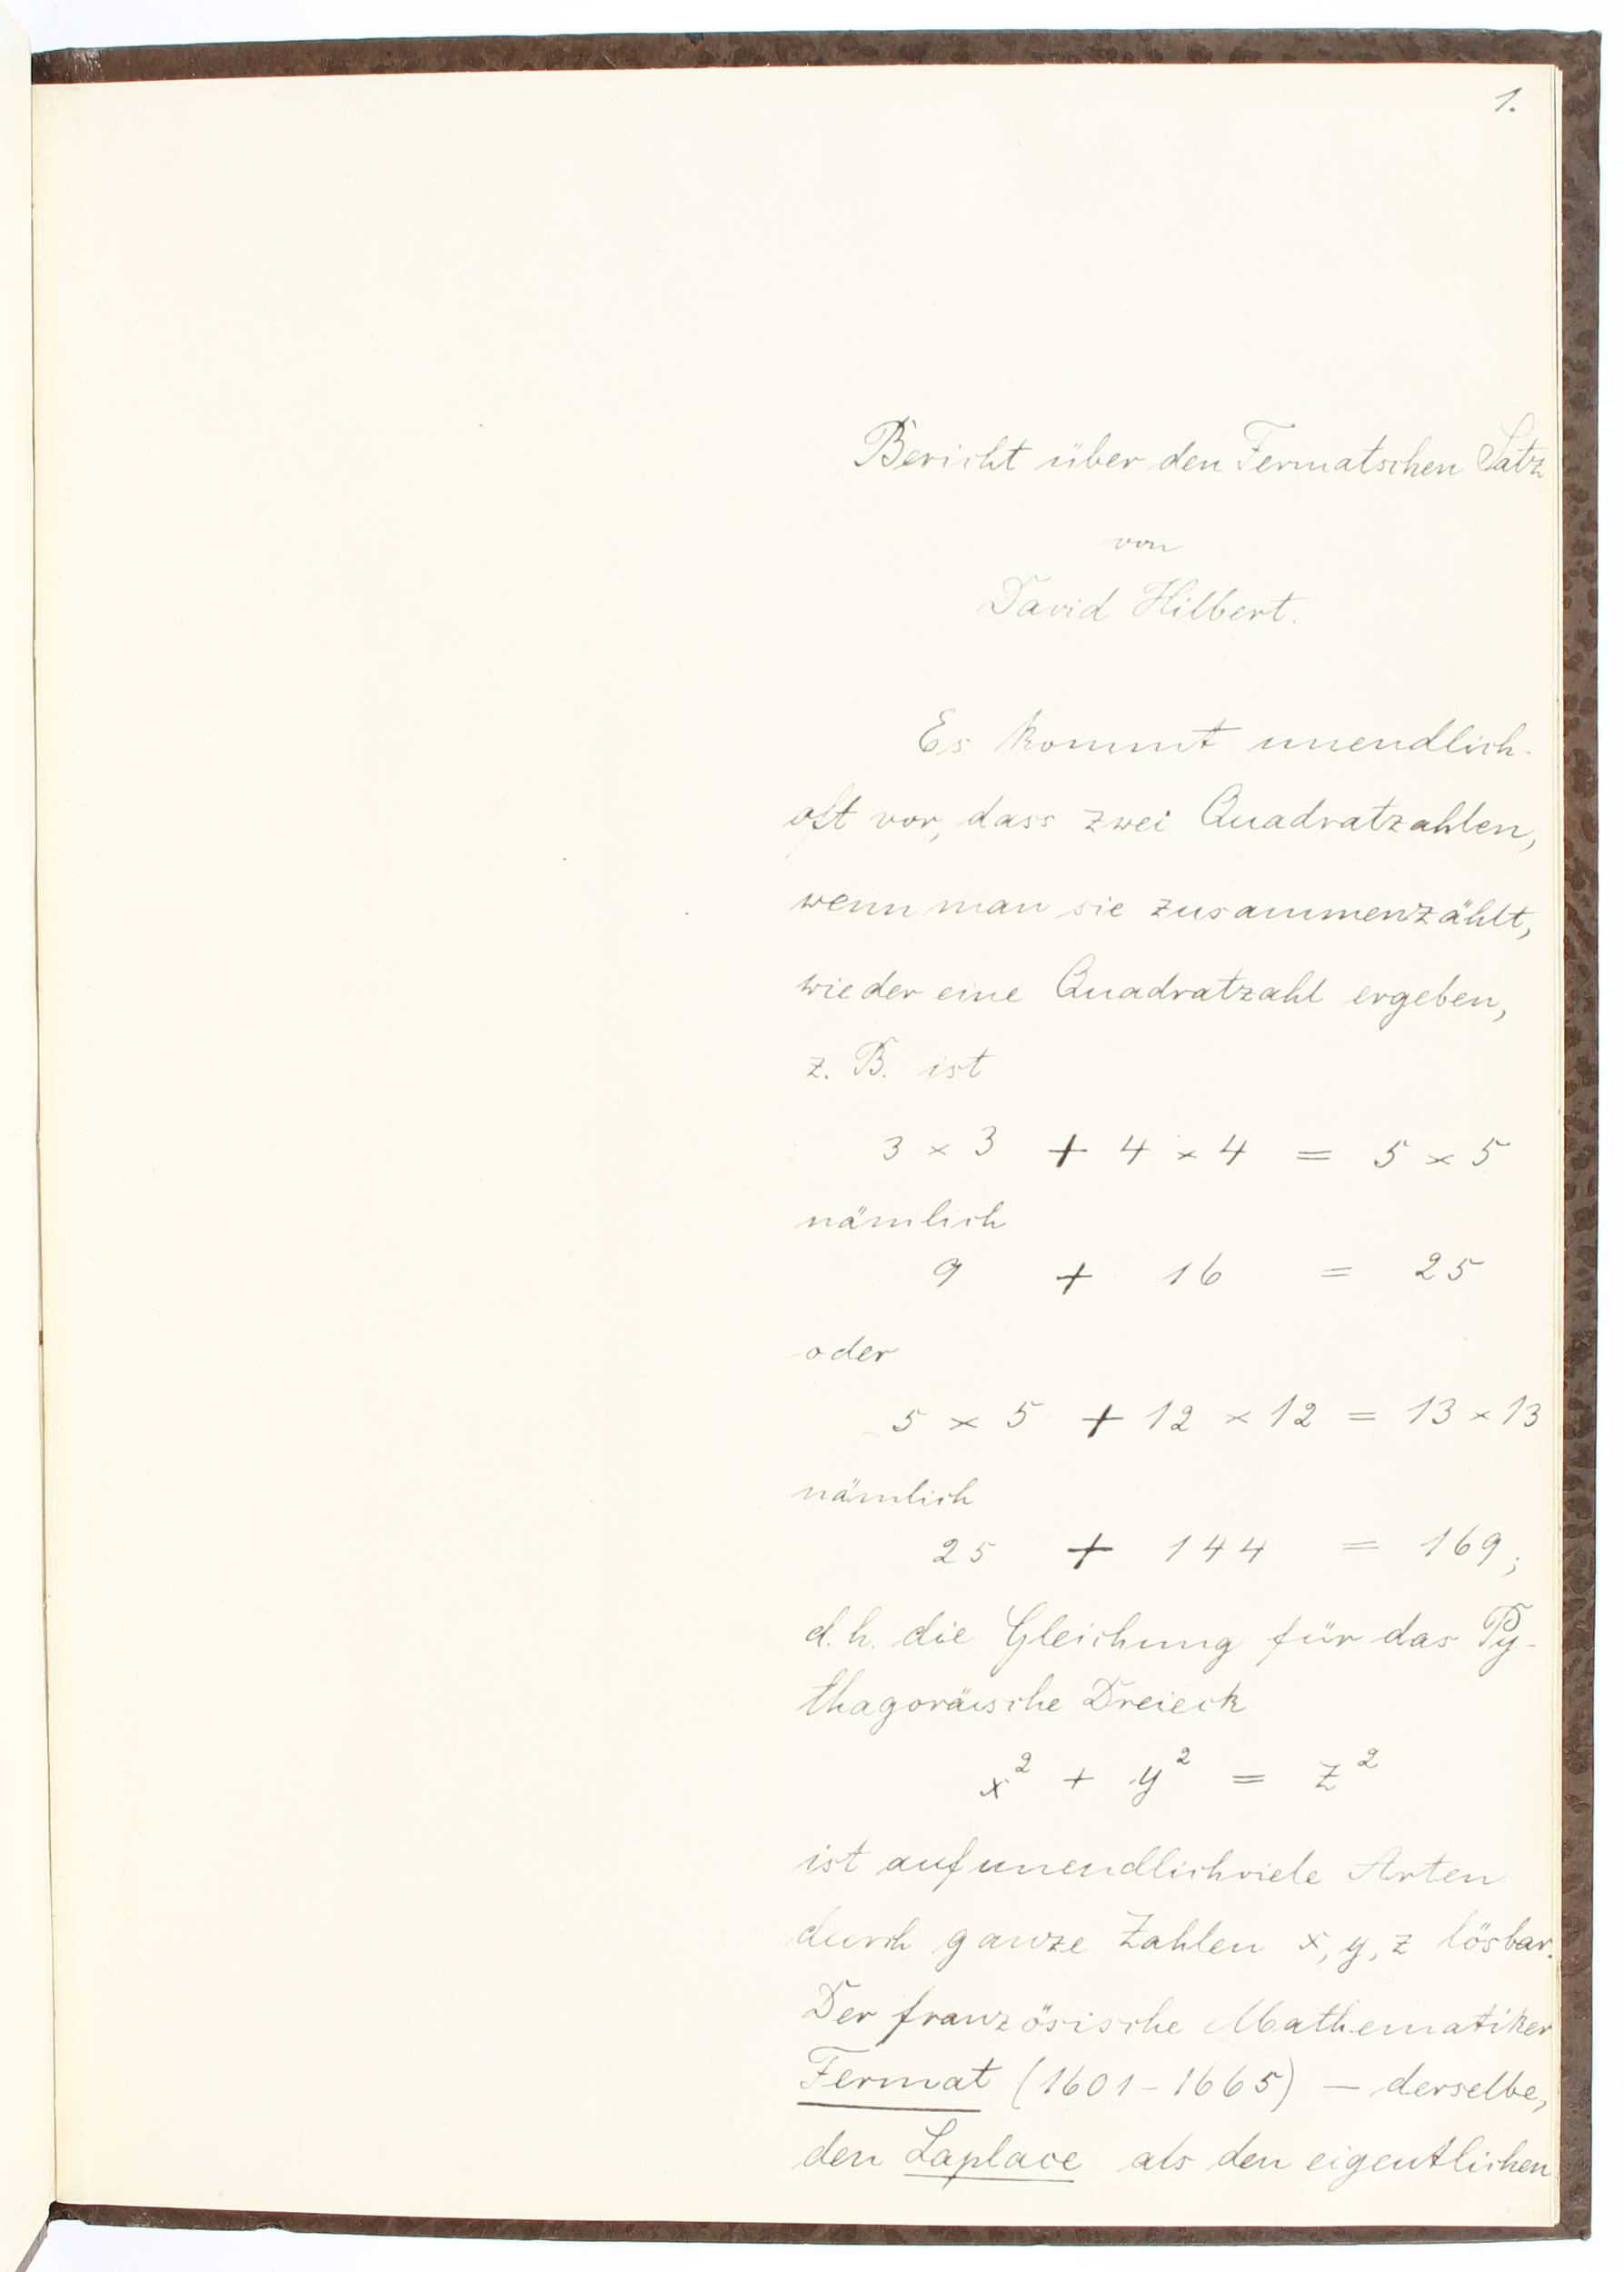 1.
Bericht über den Fermatschen Satz
von
David Hilbert.
Es kommt unendlich-
oft vor, dass zwei Quadratzahlen,
wenn man sie zusammenzählt,
wieder eine Quadratzahl ergeben,
z. B. ist
3 × 3 + 4 × 4 = 5 × 5
nämlich
9 + 16 = 25
oder
5 × 5 + 12 × 12 = 13 × 13
nämlich
25 + 144 = 169;
d. h. die Gleichung für das Py-
thagoräische Dreieck
x² + y² = z²
ist auf unendlichviele Arten
durch ganze Zahlen x, y, z lösbar.
Der französische Mathematiker
Fermat (1601 - 1665) — derselbe,
den Laplace als den eigentlichen